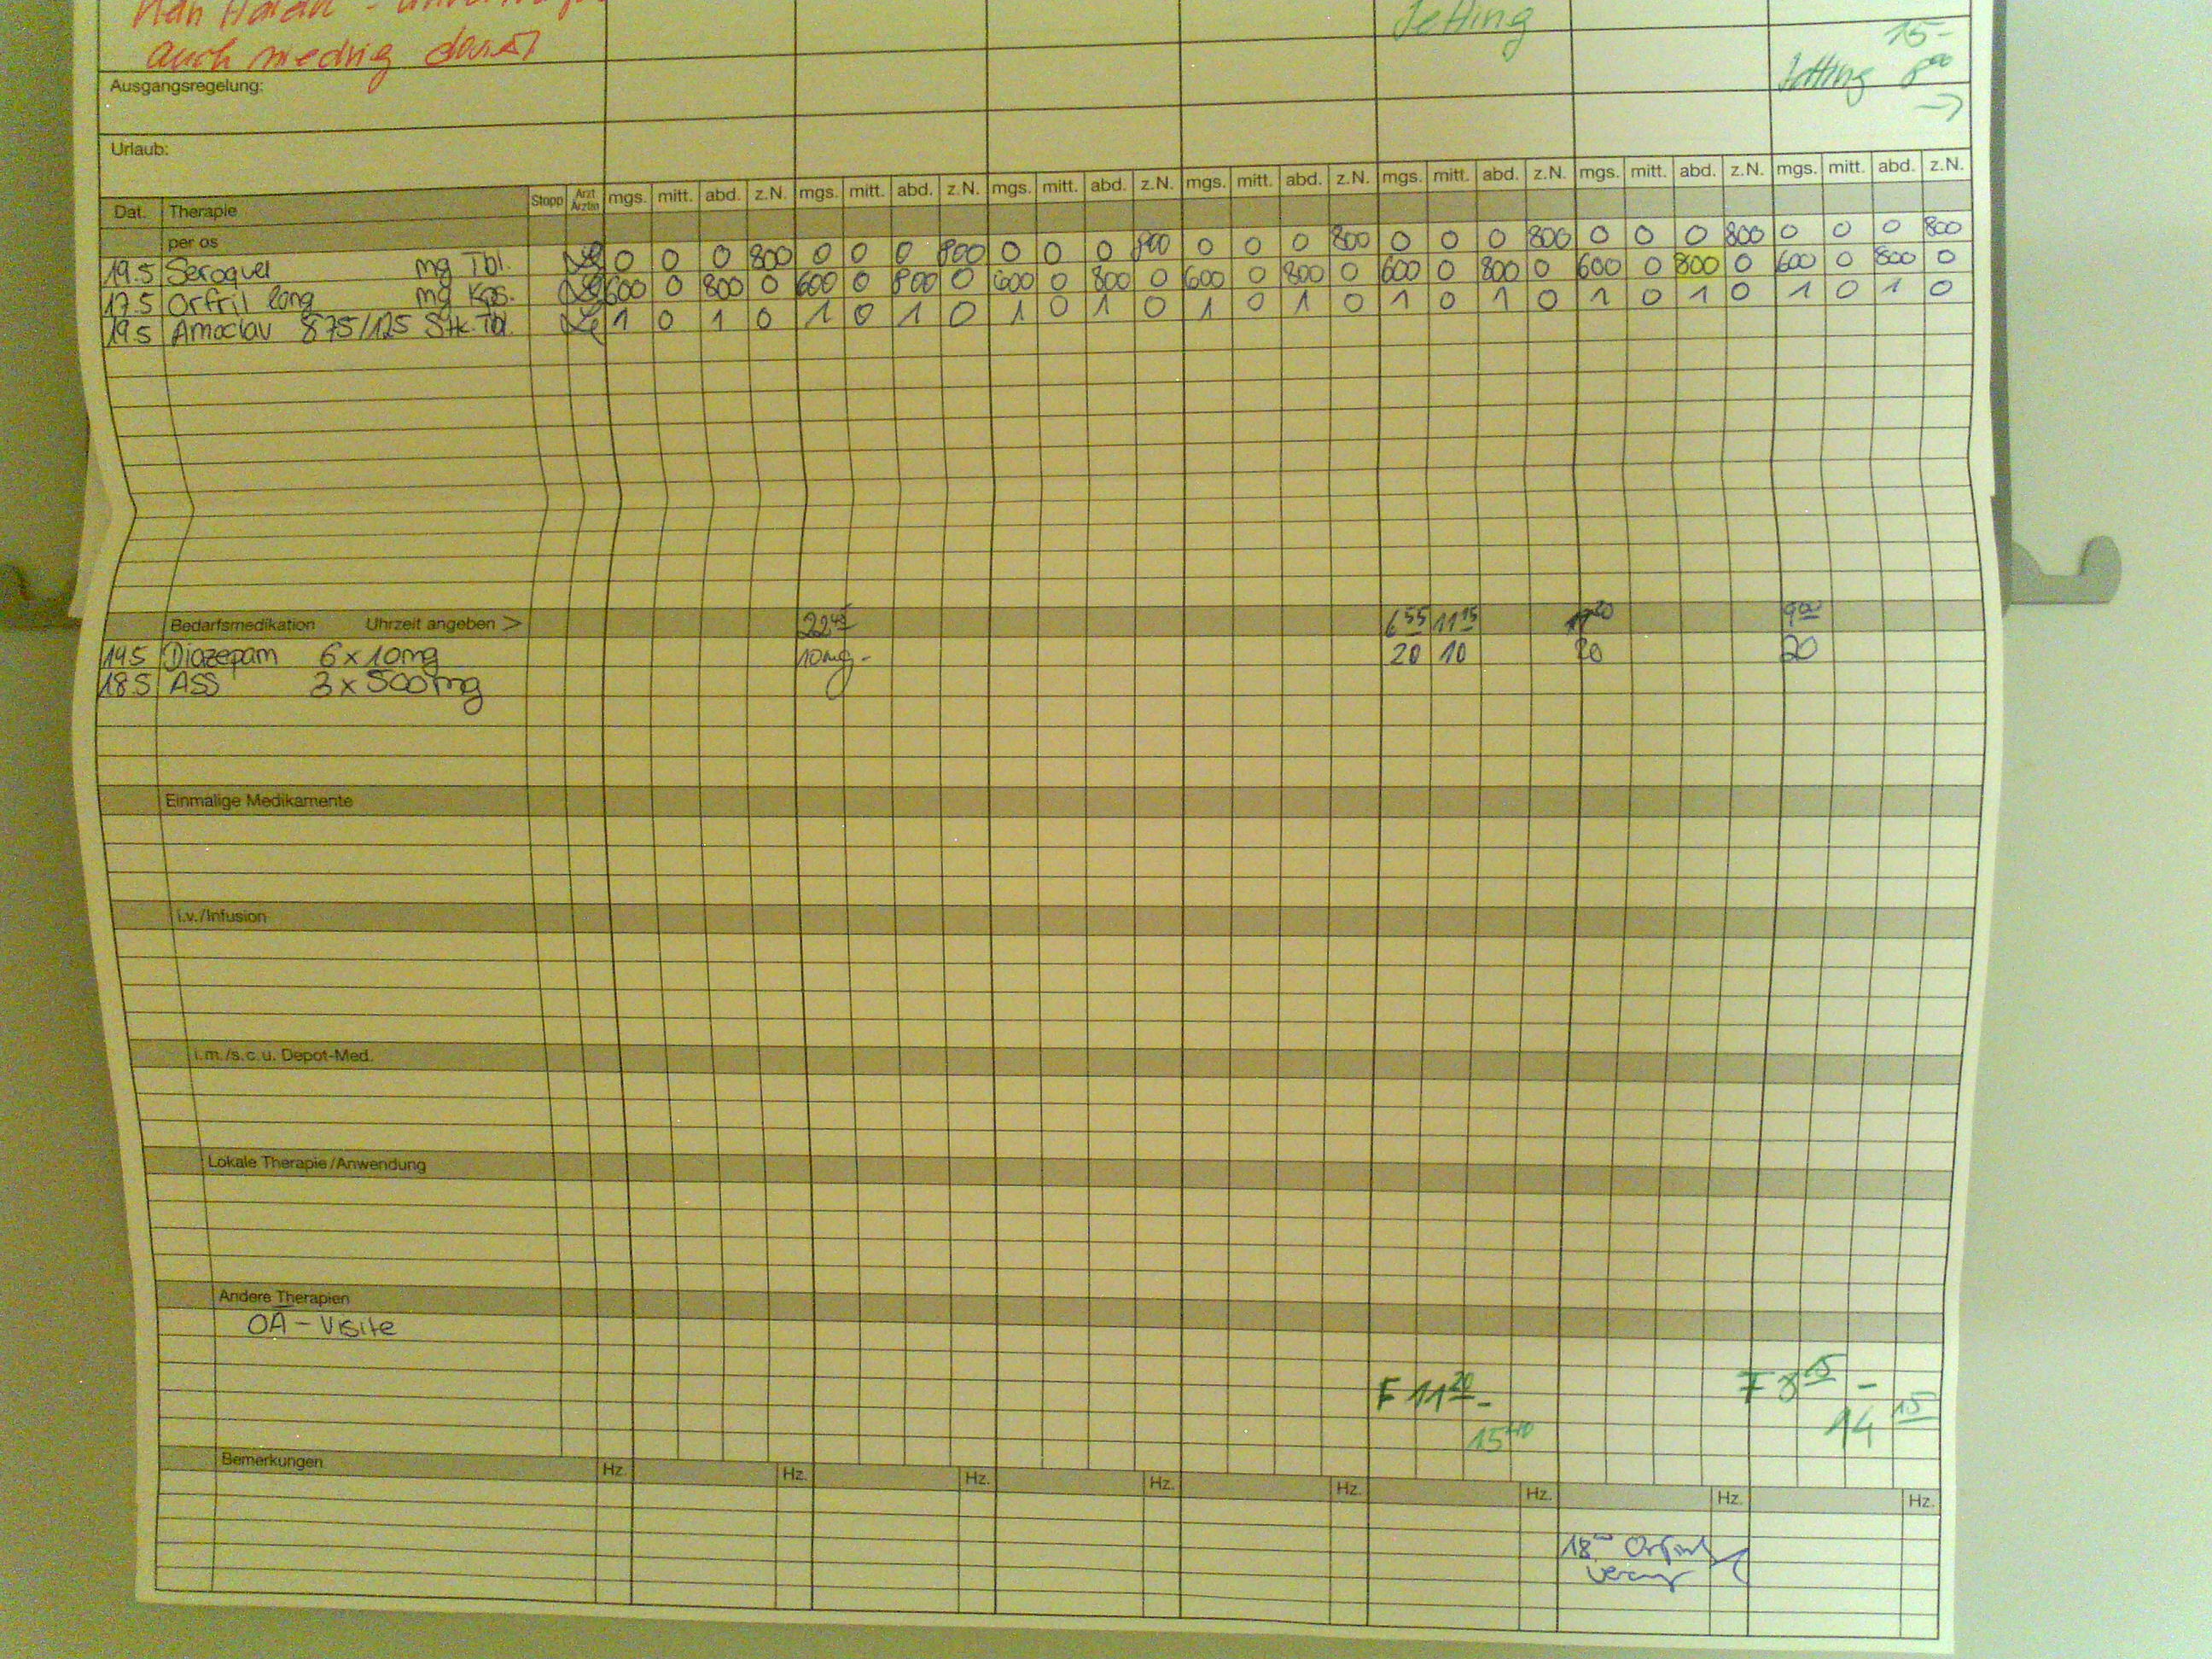 auch niedrig dosiert
Setting
15-
Setting 8⁰⁰
→
Ausgangsregelung:
Urlaub:
Dat. Therapie Stopp Arzt Ärztin mgs. mitt. abd. z.N. mgs. mitt. abd. z.N. mgs. mitt. abd. z.N. mgs. mitt. abd. z.N. mgs. mitt. abd. z.N. mgs. mitt. abd. z.N. mgs. mitt. abd. z.N.
per os
19.5 Seroquel mg Tbl. 0 0 0 800 0 0 0 800 0 0 0 800 0 0 0 800 0 0 0 800 0 0 0 800 0 0 0 800
17.5 Orfril long mg Kps. 600 0 800 0 600 0 800 0 600 0 800 0 600 0 800 0 600 0 800 0 600 0 800 0 600 0 800 0
19.5 Amoclav 875/125 Stk. Tbl. 1 0 1 0 1 0 1 0 1 0 1 0 1 0 1 0 1 0 1 0 1 0 1 0 1 0 1 0
Bedarfsmedikation Uhrzeit angeben > 22⁴⁵ 6⁵⁵ 11¹⁵ 9⁰⁰
19.5 Diazepam 6 x 10mg 10mg- 20 10 20 20
18.5 ASS 3 x 500mg
Einmalige Medikamente
i.v./Infusion
i.m./s.c.u. Depot-Med.
Lokale Therapie/Anwendung
Andere Therapien
OA - Visite
F 11²⁰ - F 8¹⁵ -
15⁴⁰ 14¹⁵
Bemerkungen Hz. Hz. Hz. Hz. Hz. Hz. Hz. Hz.